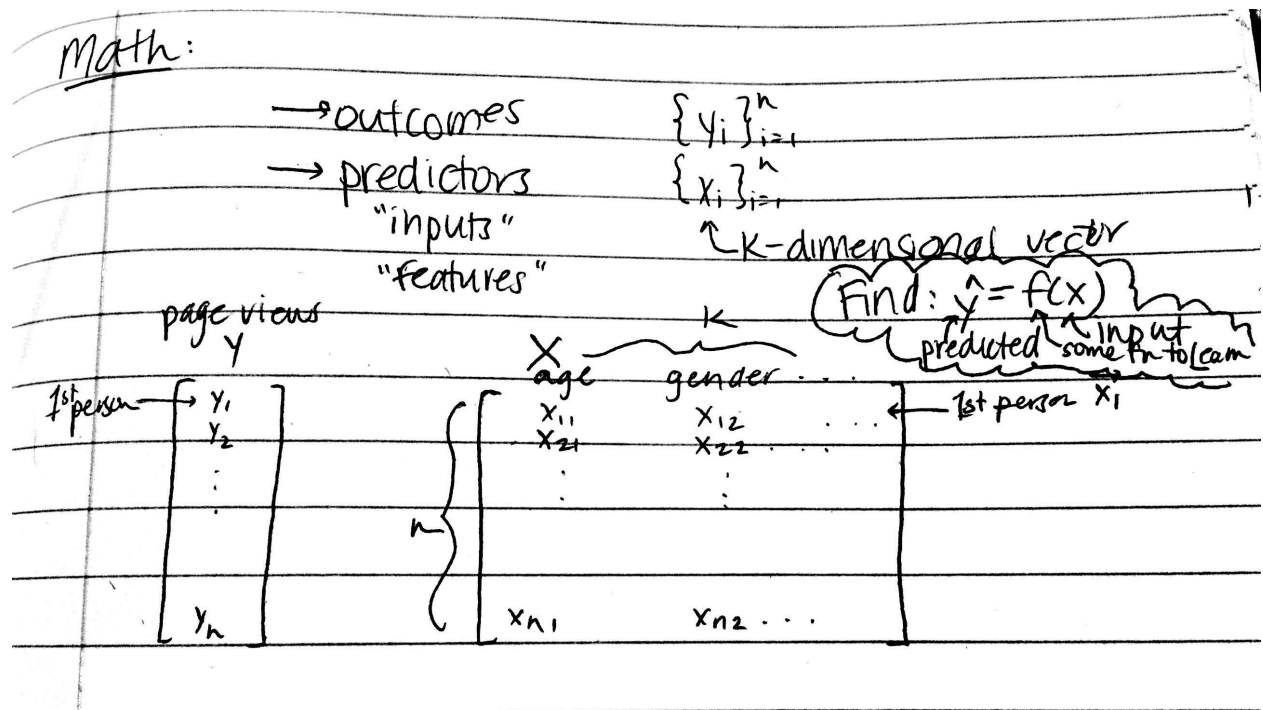 Math:
→ outcomes {yi}ⁿi=1
→ predictors {xi}ⁿi=1
"inputs" ↖ K-dimensional vector
"features"
Find: ŷ = f(x)
predicted some fn to learn input
page views
Y
X K
age gender ....
1st person → y1
x11 x12 .... ← 1st person x⃗1
y2 x21 x22 ....
⋮ ⋮ ⋮
n
yn xn1 xn2 ...